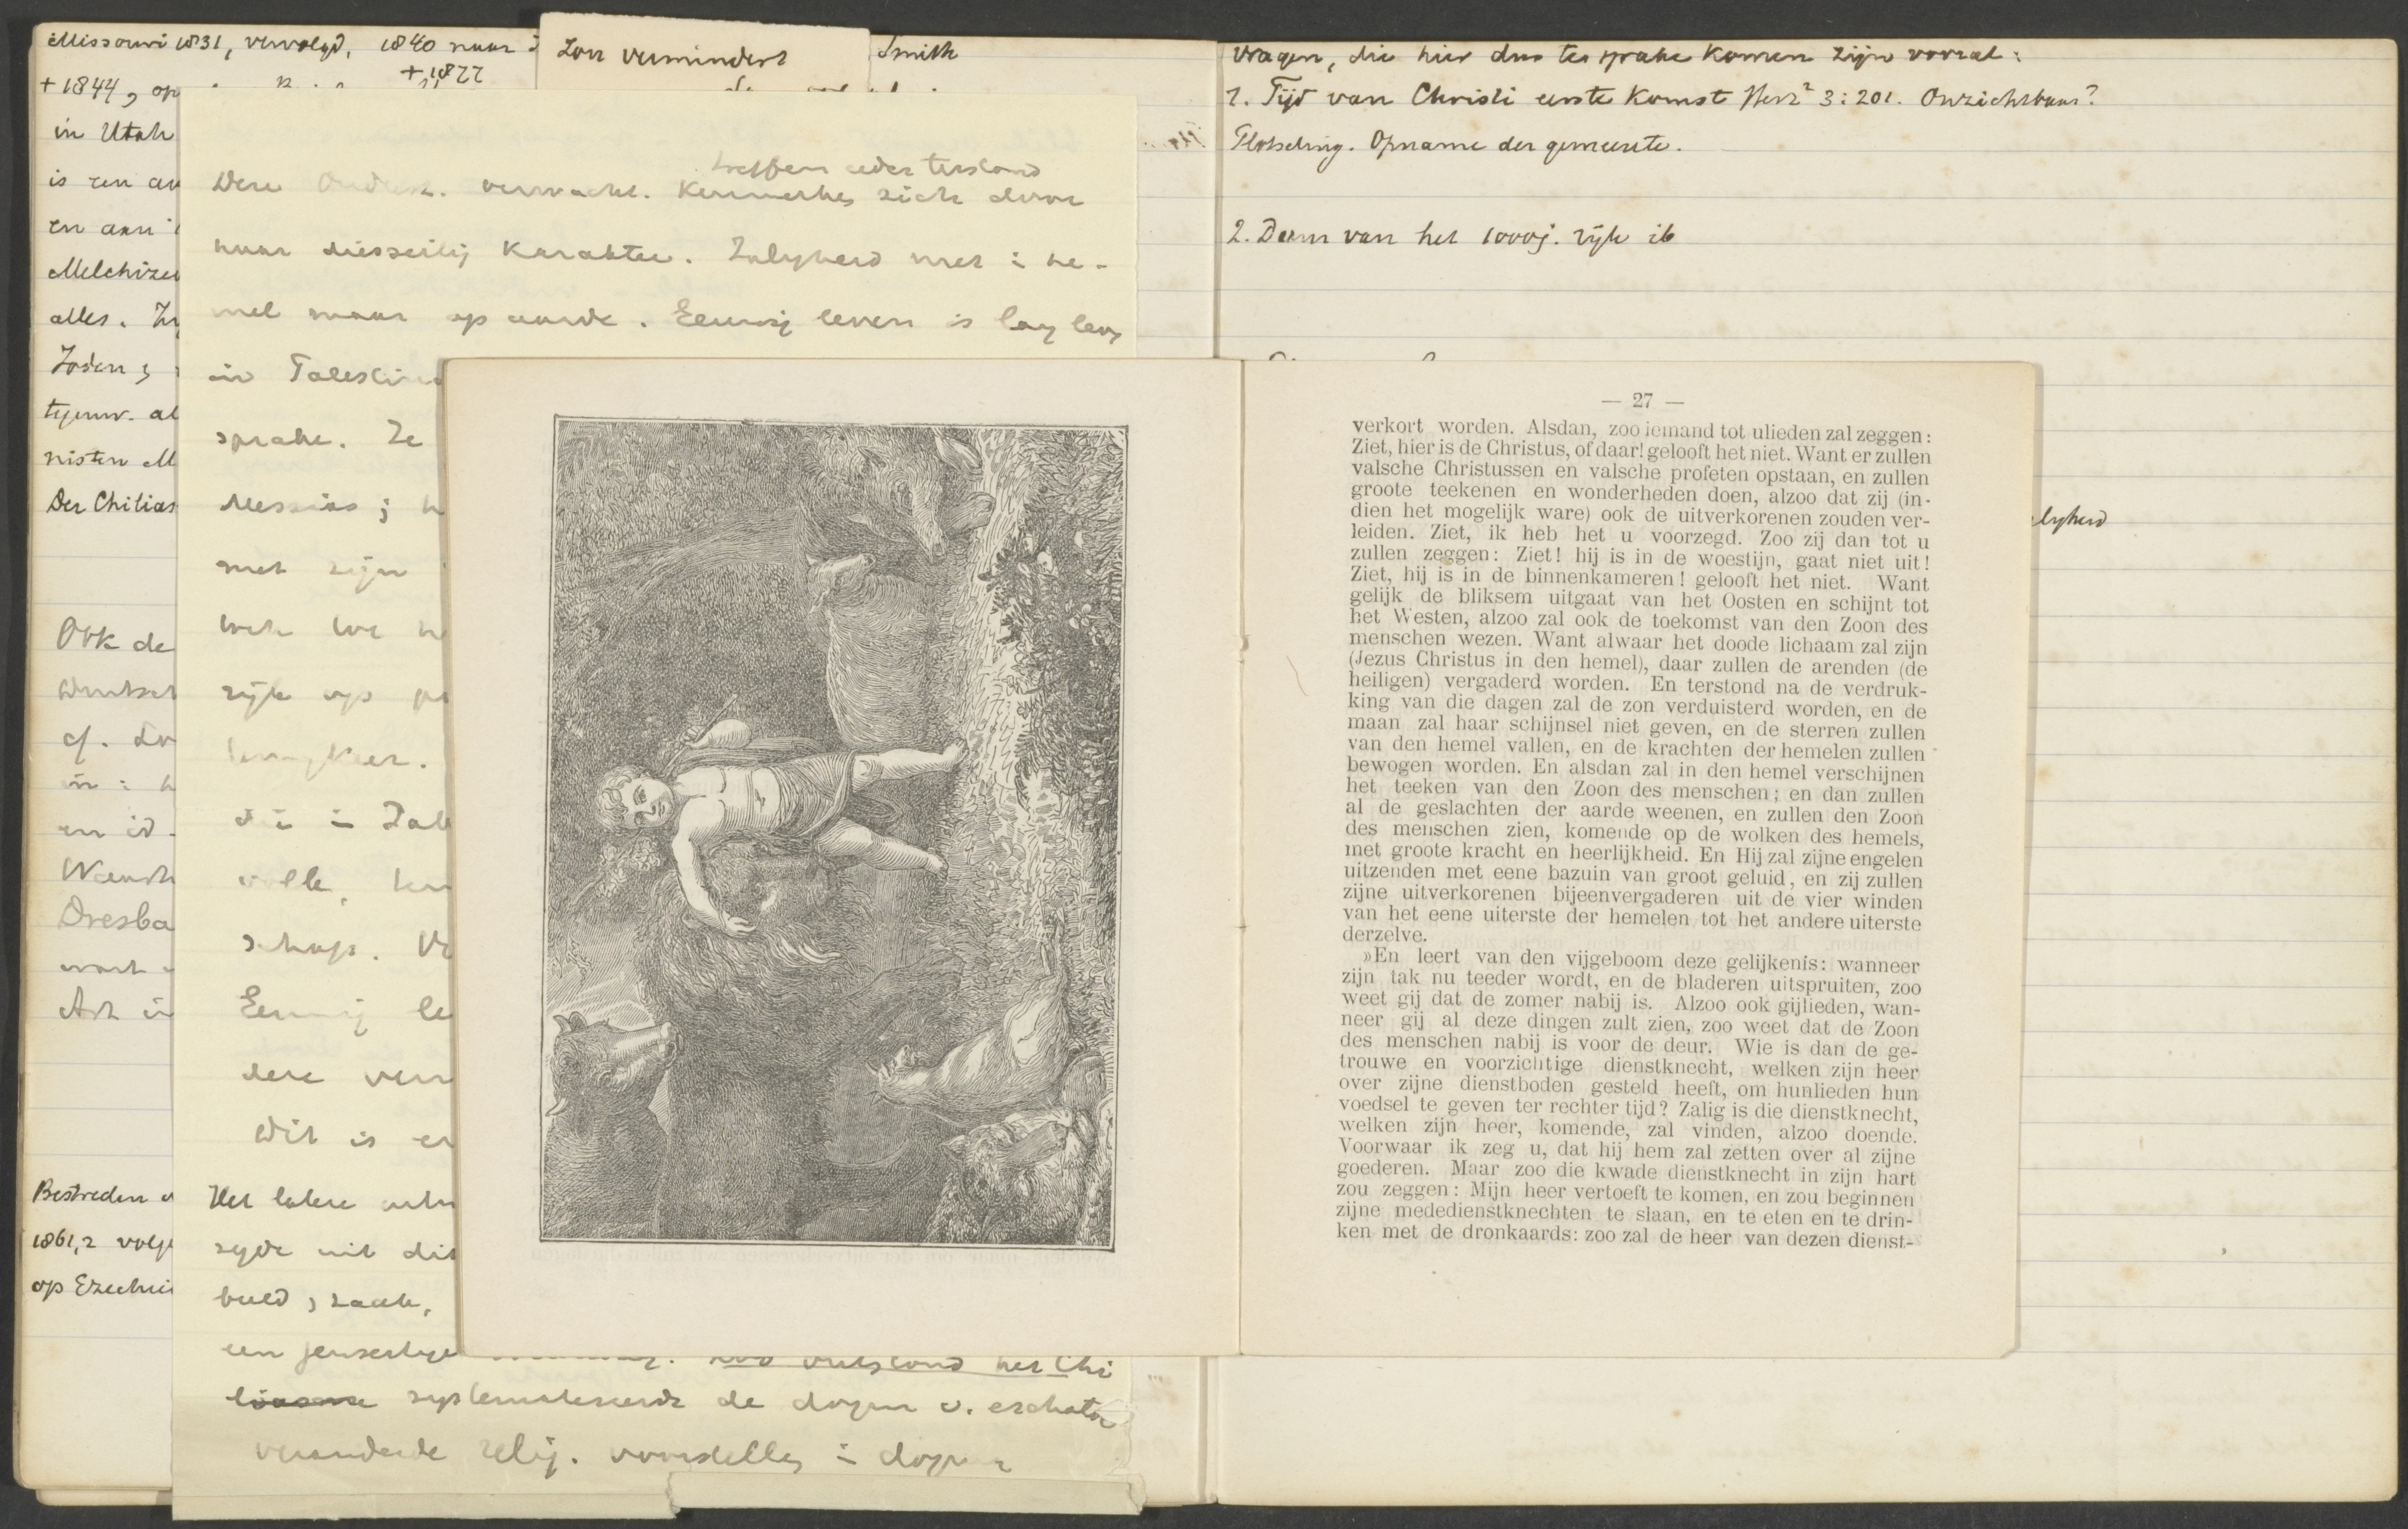 Missouri 1831, vervolgd, 1840 naar
Smith
+ 1844, op
+ 1877
in Utah
is een
en aan
Melchize
alles.
Joden;
tegenw. al
nisten M
Der Chilias
Ook de
Duitsch
cf.
en
Dresba
Bestreden
1861,2 volge
op Ezechie
Zon vermindert
treffen
Deze verwacht. kenmerken zich door
haar diesseitig karakter. Zaligheid niet i he-
mel maar op aarde. Eeuwig leven is lang leven
in Palestina
sprake. Ze
Messias;
met zijn
rijk op
keer.
volle,
schap.
Eeuwig le
deze verw
Dit is
Het latere
zijde uit dit
beeld, zaak,
een jenseitige
Zoo ontstond het Chi
liasme systematiseerde de dogm v. eschato
veranderde relig. voorstelling i dogma
Vragen, die hier dus ter sprake komen zijn vooral:
1. Tijd van Christi eerste komst Herz² 3:201. Onzichtbaar?
Plotseling. Opname der gemeente.
2. Duur van het 1000j. rijk ib
— 27 —
verkort worden. Alsdan, zoo iemand tot ulieden zal zeggen:
Ziet, hier is de Christus, of daar! gelooft het niet. Want er zullen
valsche Christussen en valsche profeten opstaan, en zullen
groote teekenen en wonderheden doen, alzoo dat zij (in-
dien het mogelijk ware) ook de uitverkorenen zouden ver-
leiden. Ziet, ik heb het u voorzegd. Zoo zij dan tot u
zullen zeggen: Ziet! hij is in de woestijn, gaat niet uit!
Ziet, hij is in de binnenkameren! gelooft het niet. Want
gelijk de bliksem uitgaat van het Oosten en schijnt tot
het Westen, alzoo zal ook de toekomst van den Zoon des
menschen wezen. Want alwaar het doode lichaam zal zijn
(Jezus Christus in den hemel), daar zullen de arenden (de
heiligen) vergaderd worden. En terstond na de verdruk-
king van die dagen zal de zon verduisterd worden, en de
maan zal haar schijnsel niet geven, en de sterren zullen
van den hemel vallen, en de krachten der hemelen zullen
bewogen worden. En alsdan zal in den hemel verschijnen
het teeken van den Zoon des menschen; en dan zullen
al de geslachten der aarde weenen, en zullen den Zoon
des menschen zien, komende op de wolken des hemels,
met groote kracht en heerlijkheid. En Hij zal zijne engelen
uitzenden met eene bazuin van groot geluid, en zij zullen
zijne uitverkorenen bijeenvergaderen uit de vier winden
van het eene uiterste der hemelen tot het andere uiterste
derzelve.
»En leert van den vijgeboom deze gelijkenis: wanneer
zijn tak nu teeder wordt, en de bladeren uitspruiten, zoo
weet gij dat de zomer nabij is. Alzoo ook gijlieden, wan-
neer gij al deze dingen zult zien, zoo weet dat de Zoon
des menschen nabij is voor de deur. Wie is dan de ge-
trouwe en voorzichtige dienstknecht, welken zijn heer
over zijne dienstboden gesteld heeft, om hunlieden hun
voedsel te geven ter rechter tijd? Zalig is die dienstknecht,
welken zijn heer, komende, zal vinden, alzoo doende.
Voorwaar ik zeg u, dat hij hem zal zetten over al zijne
goederen. Maar zoo die kwade dienstknecht in zijn hart
zou zeggen: Mijn heer vertoeft te komen, en zou beginnen
zijne mededienstknechten te slaan, en te eten en te drin-
ken met de dronkaards: zoo zal de heer van dezen dienst-